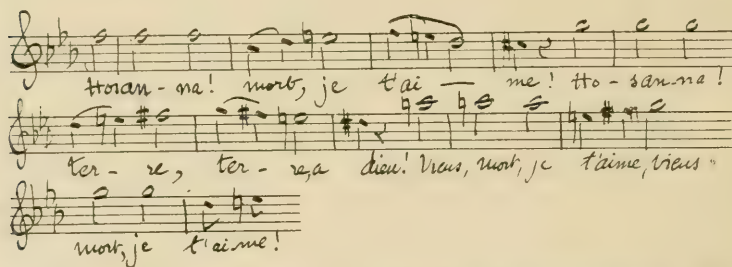 Hosan-na! mort, je t'ai — me! Ho-san-na!
ter-re, ter-re, a dieu! Viens, mort, je t'aime, viens
mort, je t'ai-me!